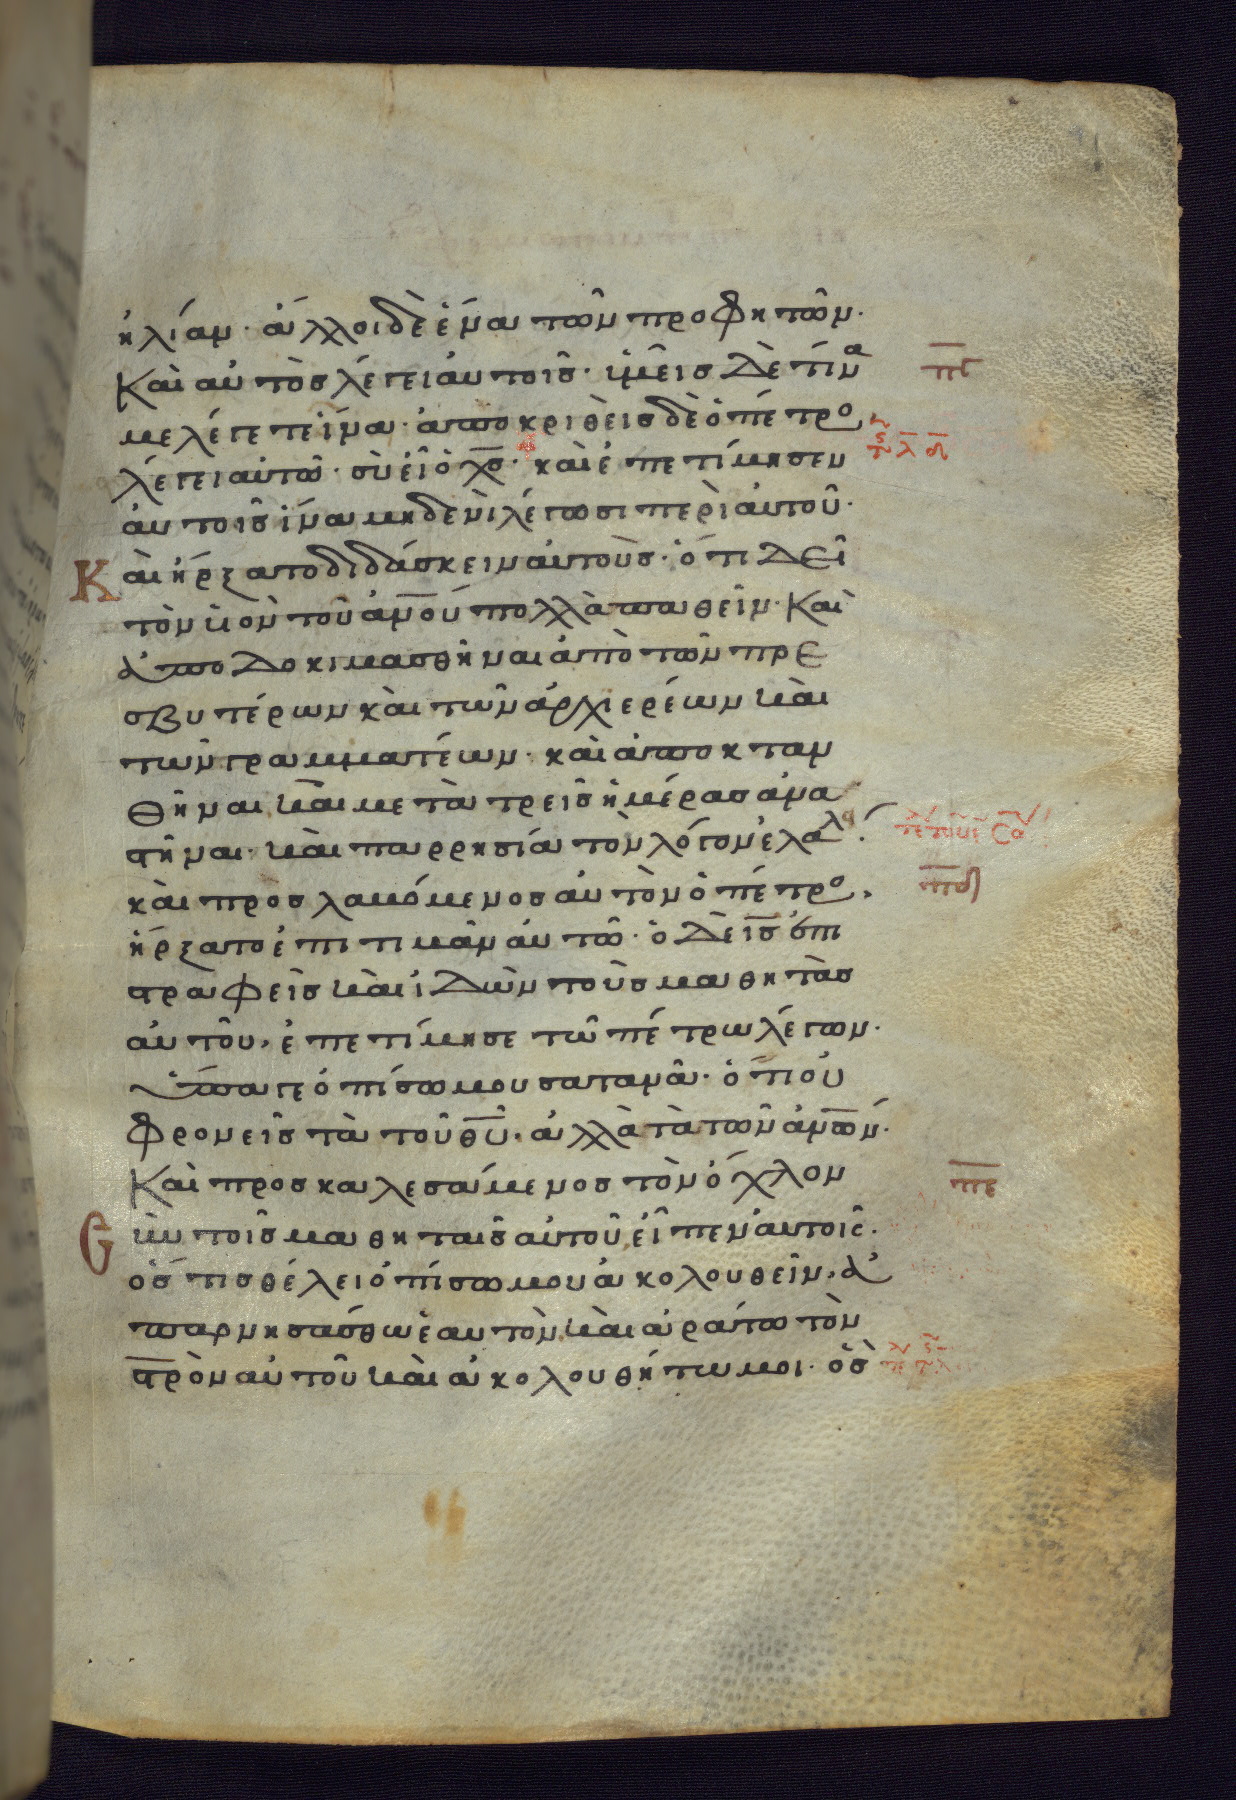 ἠλίαν· ἄλλοι δὲ ἕνα τῶν προφητῶν·
Καὶ αὐτὸσ λέγει αὐτοῖσ· ὑμεῖσ δὲ τίνα
με λέγετε εἶναι· ἀποκριθεὶσ δὲ ὁ πέτρο
λέγει αὐτῶ· σὺ εἶ ὁ χ̅σ̅· καὶ ἐπετίμησεν
αὐτοῖσ ἵνα μηδενὶ λέγωσι περὶ αὐτοῦ·
Καὶ ἤρξατο διδάσκειν αὐτοὺσ· ὅτι δεῖ
τὸν υἱὸν τοῦ ἀν̅ο̅υ̅ πολλὰ παθεῖν· Καὶ
ἀποδοκιμασθῆναι ἀπὸ τῶν πρε
σβυτέρων καὶ τῶν ἀρχιερέων καὶ
τῶν γραμματέων· καὶ ἀποκταν
θῆναι καὶ μετὰ τρεῖσ ἡμέρασ ἀνα
στῆναι· καὶ παρρησία τὸν λόγον ἐλάλ·
καὶ προσλαβόμενοσ αὐτὸν ὁ πέτρο,
ἤρξατο ἐπιτιμᾶν αὐτῶ· ὁ δὲ ι̅σ̅ ἐπι
στραφεὶσ καὶ ἰδὼν τοὺσ μαθητὰσ
αὐτοῦ, ἐπετίμησε τῶ πέτρω λέγων·
ὕπαγε ὀπίσω μου σατανᾶ· ὅτι οὐ
φρονεῖσ τὰ τοῦ θ̅υ̅· ἀλλὰ τὰ τῶν ἀν̅ω̅ν̅·
Καὶ προσκαλεσάμενοσ τὸν ὄχλον
σὺν τοῖσ μαθηταῖσ αὐτοῦ εἶπεν αὐτοῖσ·
ὅστισ θέλει ὀπίσω μου ἀκολουθεῖν, ἀ
παρνησάσθω ἑαυτὸν καὶ ἀράτω τὸν
σ̅τ̅ρ̅ὸν αὐτοῦ καὶ ἀκολουθήτω μοι· ὃσ
π̅γ̅
π̅δ̅
π̅ε̅